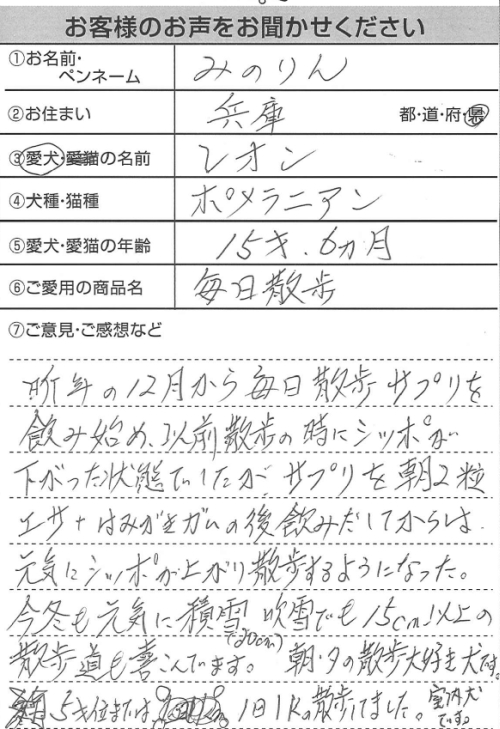 お客様のお声をお聞かせください
①お名前・ペンネーム みのりん
②お住まい 兵庫 都・道・府・県
③愛犬・愛猫の名前 レオン
④犬種・猫種 ポメラニアン
⑤愛犬・愛猫の年齢 15才.6ヵ月
⑥ご愛用の商品名 毎日散歩
⑦ご意見・ご感想など
昨年の12月から毎日散歩サプリを
飲み始め、以前散歩の時にシッポが
下がった状態でしたがサプリを朝2粒
エサ+はみがきガムの後飲みだしてからは、
元気にシッポが上がり散歩するようになった。
今冬も元気に積雪 吹雪でも15cm以上の
(で20cm)
散歩道も喜こんでいます。 朝・夕の散歩大好き犬です。
5才位までは、1日1kの散歩してました。室内犬です。